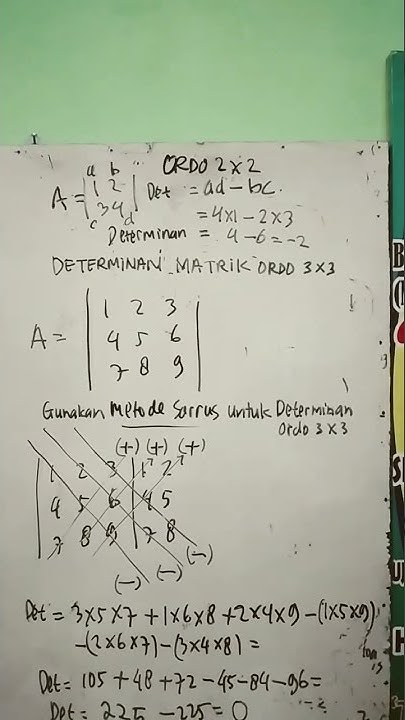 ORDO 2x2
a b
A = | 1 2 | Det = ad - bc.
3 4
c d
= 4x1 - 2x3
Determinan = 4 - 6 = -2
DETERMINAN MATRIK ORDO 3x3
1 2 3
A = 4 5 6
7 8 9
Gunakan Metode Sarrus untuk Determinan
Ordo 3x3
(+) (+) (+)
1 2 3 1 2
4 5 6 4 5
7 8 9 7 8
(-) (-) (-)
Det = 3x5x7 + 1x6x8 + 2x4x9 - (1x5x9)
- (2x6x7) - (3x4x8) =
Det = 105 + 48 + 72 - 45 - 84 - 96 =
Det = 225 - 225 = 0